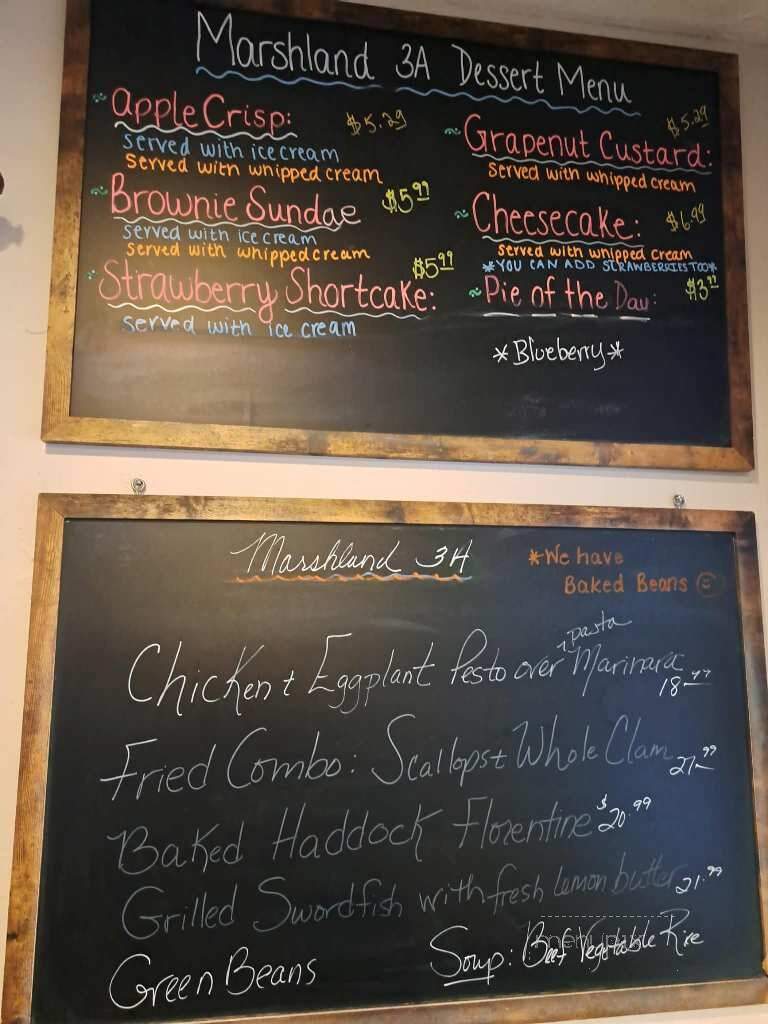 Marshland 3A Dessert Menu
~ Apple Crisp: $5.29
served with ice cream
served with whipped cream
~ Brownie Sundae $5.99
served with ice cream
served with whipped cream
~ Strawberry Shortcake: $5.99
served with ice cream
~ Grapenut Custard: $5.29
served with whipped cream
~ Cheesecake: $6.99
served with whipped cream
*YOU CAN ADD STRAWBERRIES TOO*
~ Pie of the Day: $3.99
*Blueberry*
Marshland 3A
*We have
Baked Beans
pasta
Chicken + Eggplant Pesto over Marinara
18.99
Fried Combo: Scallops + Whole Clam 21.99
Baked Haddock Florentine $20.99
Grilled Swordfish with fresh lemon butter 21.99
Green Beans
Soup: Beef Vegetable Rice